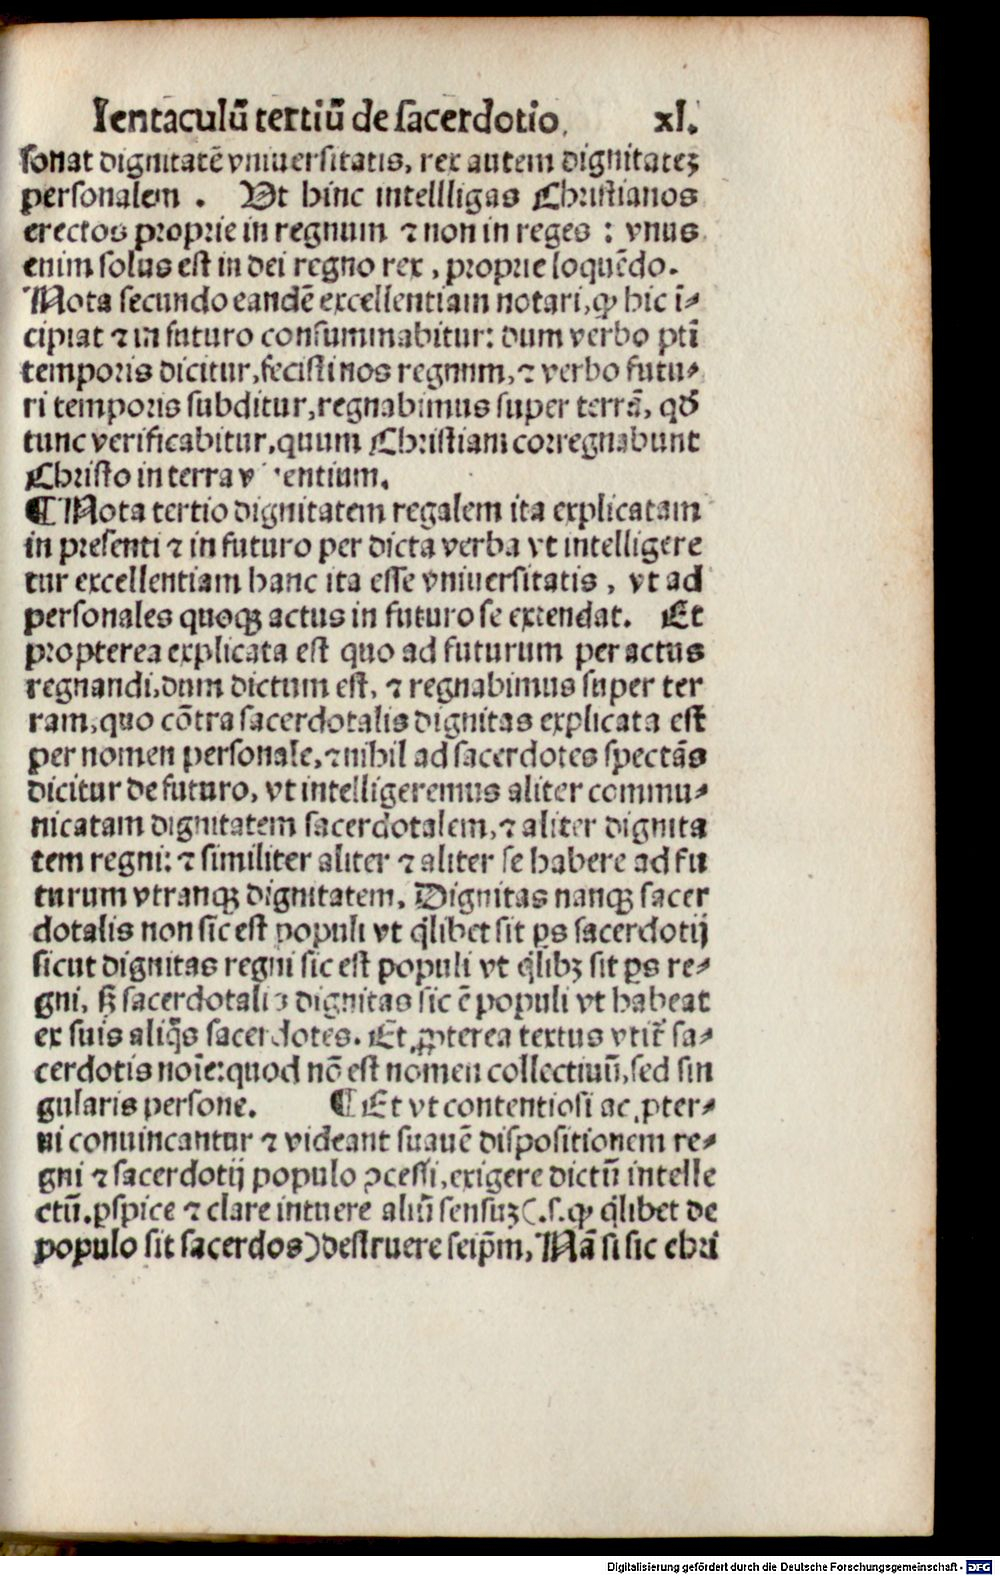 Ientaculū tertiū de sacerdotio. xl.
sonat dignitatē vniuersitatis, rex autem dignitateʒ
personalem . Vt hinc intellligas Christianos
erectos proprie in regnum ⁊ non in reges : vnus
enim solus est in dei regno rex , proprie loquēdo.
Nota secundo eandē excellentiam notari, ꝙ hic ī⸗
cipiat ⁊ in futuro consummabitur: dum verbo pñti
temporis dicitur, fecisti nos regnum, ⁊ verbo futu⸗
ri temporis subditur, regnabimus super terrā, qđ
tunc verificabitur, quum Christiani corregnabunt
Christo in terra entium.
¶ Nota tertio dignitatem regalem ita explicatam
in presenti ⁊ in futuro per dicta verba vt intelligere
tur excellentiam hanc ita esse vniuersitatis , vt ad
personales quoqꝫ actus in futuro se extendat. Et
propterea explicata est quo ad futurum per actus
regnandi, dum dictum est, ⁊ regnabimus super ter
ram, quo cōtra sacerdotalis dignitas explicata est
per nomen personale, ⁊ nihil ad sacerdotes spectās
dicitur de futuro, vt intelligeremus aliter commu⸗
nicatam dignitatem sacerdotalem, ⁊ aliter dignita
tem regni: ⁊ similiter aliter ⁊ aliter se habere ad fu
turum vtranqꝫ dignitatem. Dignitas nanqꝫ sacer
dotalis non sic est populi vt q̇libet sit ꝑs sacerdotij
sicut dignitas regni sic est populi vt q̇libꝫ sit ꝑs re⸗
gni, sꝫ sacerdotalis dignitas sic ē populi vt habeat
ex suis aliq̄s sacerdotes. Et ꝓpterea textus vtit̃ sa⸗
cerdotis noīe: quod nō est nomen collectiuū, sed sin
gularis persone. ¶ Et vt contentiosi ac ꝓter⸗
ui conuincantur ⁊ videant suauē dispositionem re⸗
gni ⁊ sacerdotij populo ꝯcessi, exigere dictū intelle
ctū. ꝑspice ⁊ clare intuere aliū sensuꝫ (.s. ꝙ q̇libet de
populo sit sacerdos) destruere seip̄m, Nā si sic chri
Digitalisierung gefördert durch die Deutsche Forschungsgemeinschaft - DFG